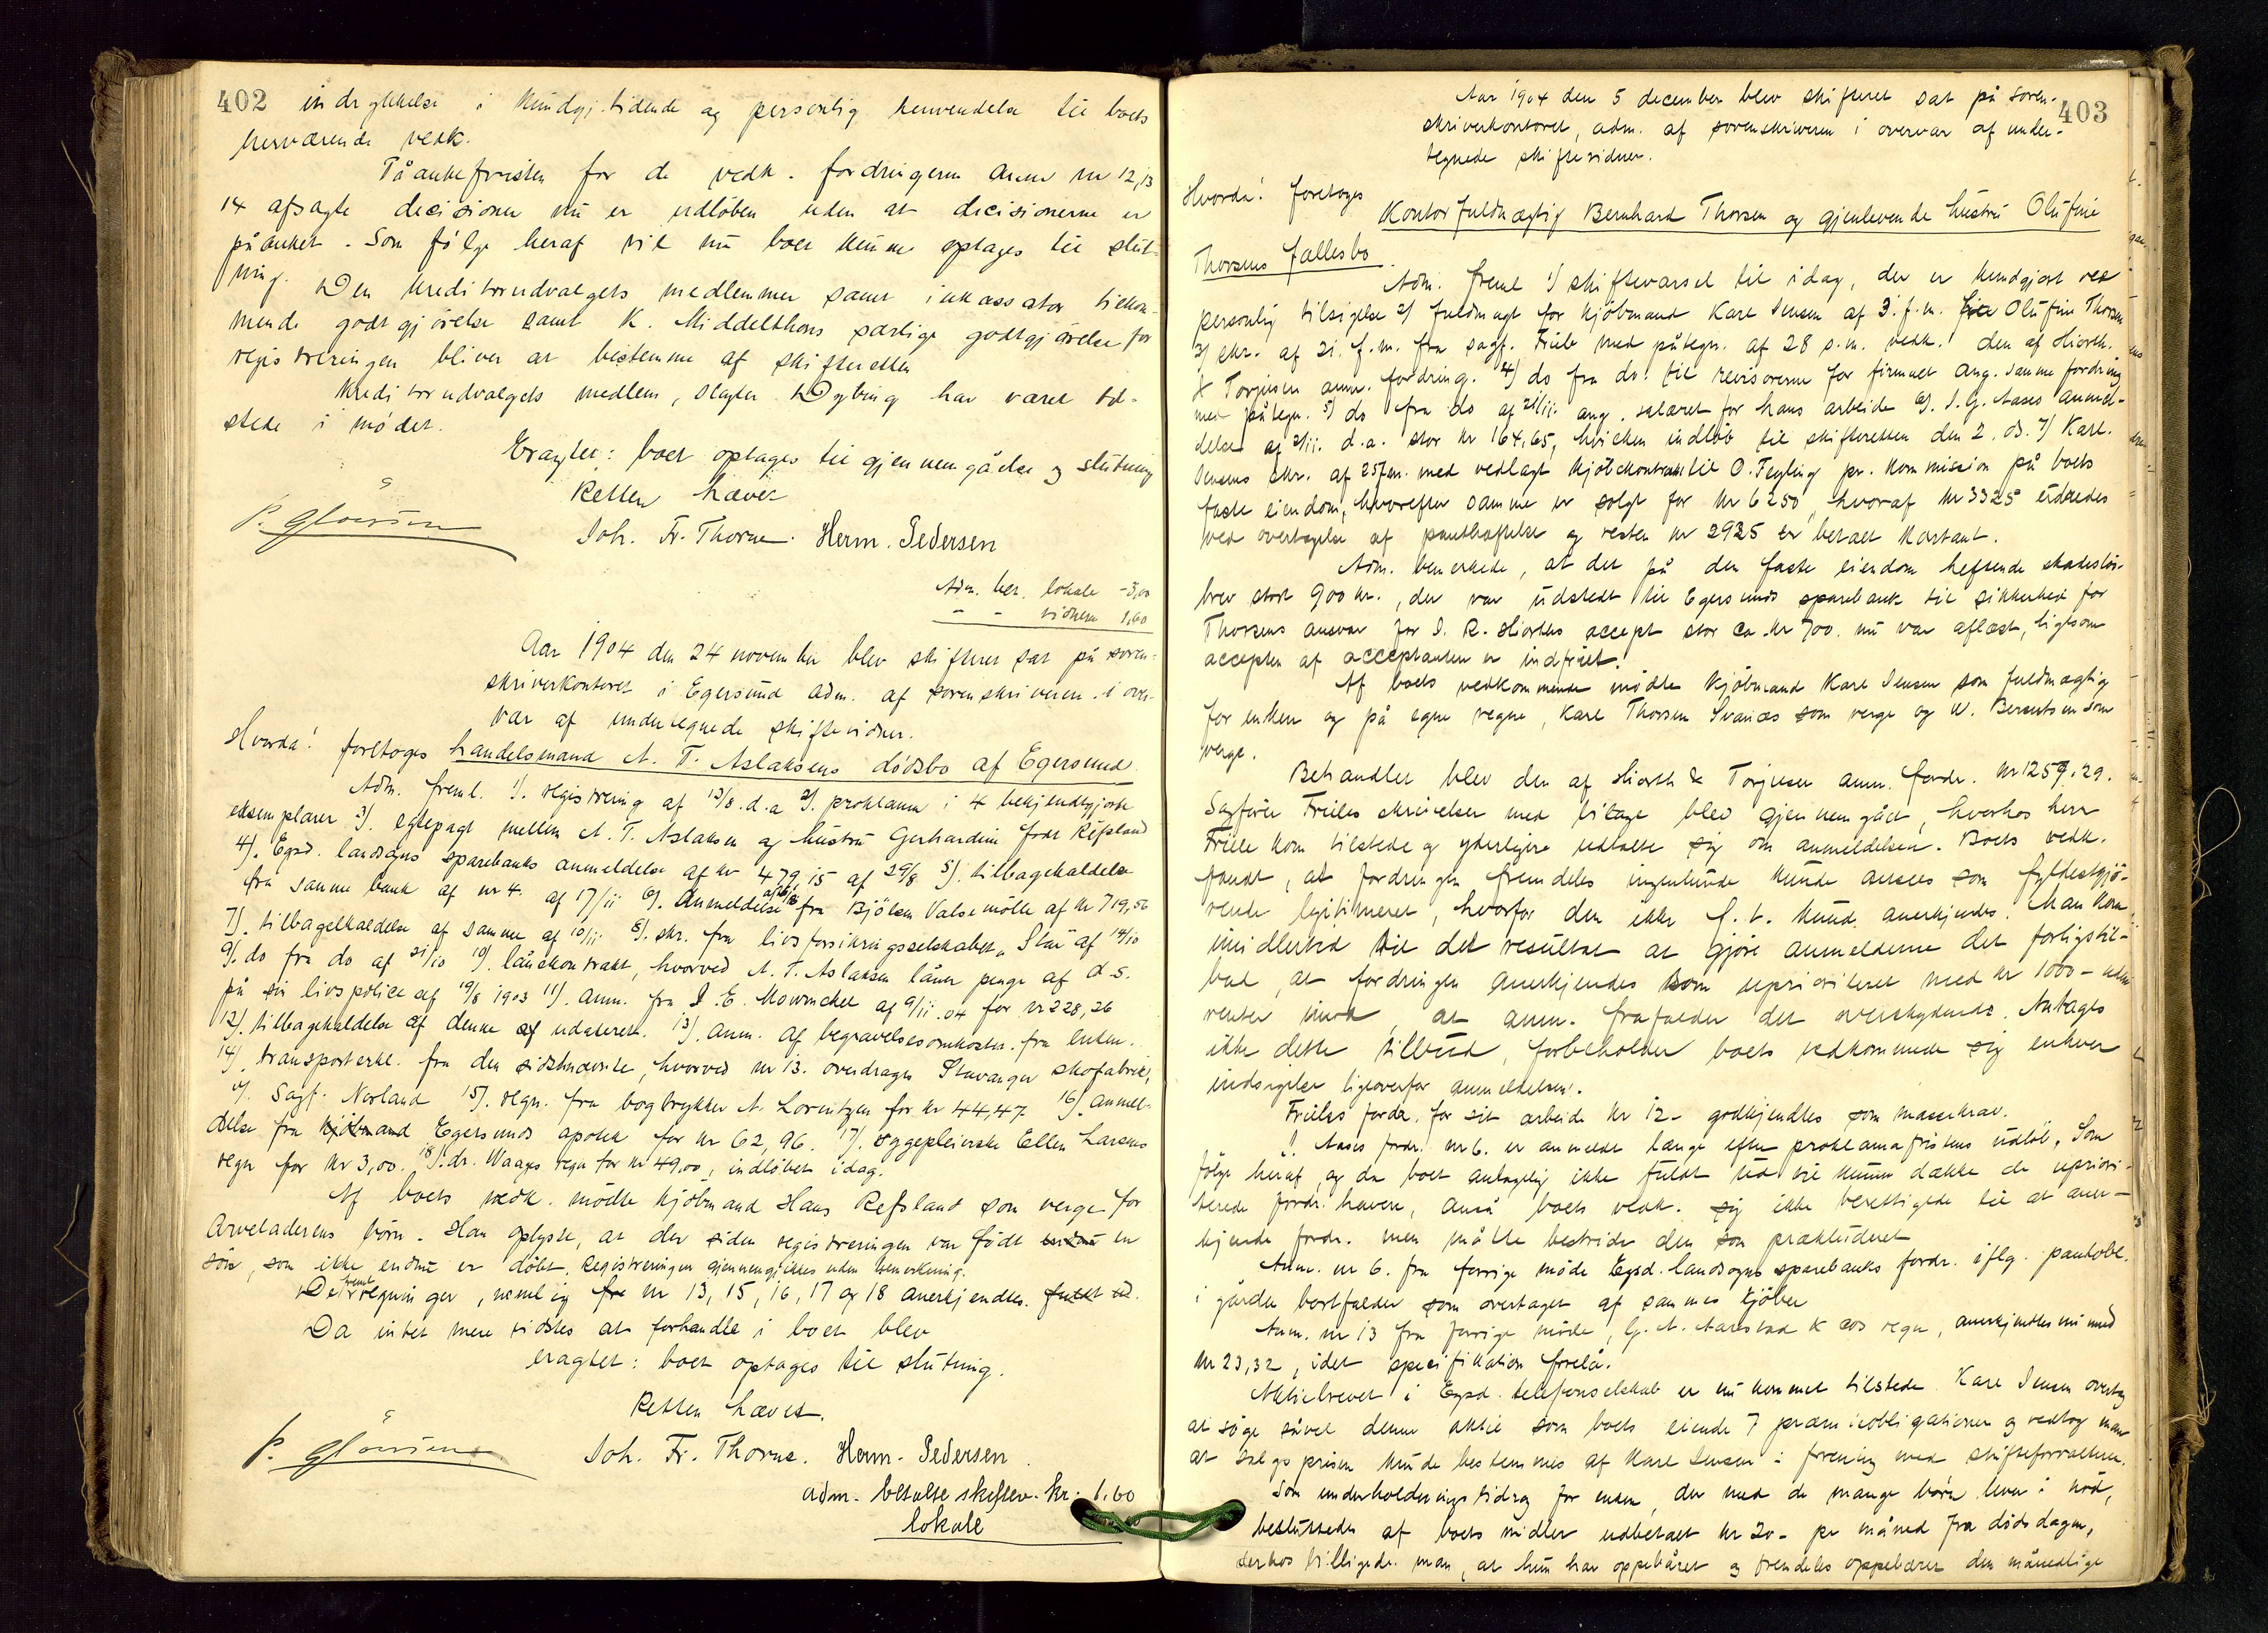 402 indrykkelse i Kundgj. tidende og personlig henvendelse til boets
herværende vedk.
Påankefristen for de vedk. fordringerne anm nr 12, 13
14 afsagte decisioner nu er udløben uden at decisionerne er
påanket. Som følge heraf vil nu boet kunne optages til slut-
ning. Den kreditorudvalgets medlemmer samt inkassator tilkom-
mende godtgjørelse samt K. Middelthons særlige godtgjørelse for
registreringen bliver at bestemme af skifteretten
Kreditorudvalgets medlem, slagter Dybing har været til-
stede i mødet.
Eragtet: boet optages til gjennemgåelse og slutning
Retten hævet
Joh. Fr. Thorne. Herm. Pedersen
Adm. ber. lokale - 3,00
" - vidnern 1,60
Aar 1904 den 24 november blev skifteret sat på soren-
skriverkontoret i Egersund adm. af sorenskriveren i over-
vær af undertegnede skiftevidner.
Hvorda! foretoges handelsmand A. T. Aslaksens dødsbo af Egersund
Adm. freml. 1). registrering af 13/8. d.a 2). proklama i 4 bekjendtgjorte
eksemplarer 3). egtepagt mellem A. T. Aslaksen og hustru Gerhardine født Refsland
4). Egsd. landsogns sparebanks anmeldelse af kr 479,15 af 29/8 5). tilbagekaldelse
fra samme bank af nr 4. af 17/11 6). Anmeldelse fra Bjølsen Valsemølle af kr 719,50
7). tilbagekaldelse af samme af 10/11 8). skr. fra livsforsikringsselskabet "Star" af 14/10
9). do fra do af 21/10 10). lånekontrakt, hvorved A. T. Aslaksen låner penge af d.s.
på sin livspolice af 19/8 1903 11). anm. fra J. E. Mowinckel af 9/11.04 for kr 228,26
12). tilbagekaldelse af denne af udateret. 13). anm. af begravelsesomkostn. fra enken.
14). transporterkl. fra den sidstnævnte, hvorved nr 13. overdrages Stavanger skofabrik,
v/ Sagf. Norland 15). regn. fra bogtrykker A. Lorentzen for kr 44,47 16). anmel-
delse fra kjøbmand Egersunds apotek for kr 62,96. 17). sygepleierske Ellen Larsens
regn for kr 3,00. 18). dr. Waages regn for kr 49,00, indløbet idag.
Af boets vedk. mødte kjøbmand Hans Refsland som verge for
Arveladerens børn. Han oplyste, at der siden registreringen var født endnu en
søn, som ikke endnu er døbt. Registreringen gjennemgikkes uden bemerkning.
De freml regninger, nemlig fra nr 13, 15, 16, 17 og 18 anerkjendtes. fuldt ud.
Da intet mere vidstes at forhandle i boet blev
eragtet: boet optages til slutning.
Retten hævet.
Joh. Fr. Thorne. Herm. Pedersen
adm. betalte skiftev. kr. 1.60
lokale
403
Aar 1904 den 5 december blev skifteret sat på soren-
skriverkontoret, adm. af sorenskriveren i overvær af under-
tegnede skiftevidner.
Hvorda! foretoges
Kontorfuldmægtig Bernhard Thorsen og gjenlevende hustru Olufine
Thorsens fællesbo
Adm. freml 1) skiftevarsel til idag, der er kundgjort ved
personlig tilsigelse 2) fuldmagt for kjøbmand Karl Jensen af 3. f.m. fra Olufine Thorsen
3) skr. af 21. f.m. fra sagf. Friele med påtegn. af 28 s.m. vedk. den af Hiorth
& Torjusen anm. fordring. 4) do fra do. til revisorerne for firmaet ang. samme fordring
med påtegn. 5) do fra do af 21/11. ang. salæret for hans arbeide 6). J. G. Aases anmel-
delse af 2/11. d.a. stor kr 164,65, hvilken indløb til skifteretten den 2. ds. 7) Karl
Jensens skr. af 25 f.m. med vedlagt kjøbekontrakt til O. Tegling pr. kommission på boets
faste eiendom, hvorefter samme er solgt for kr 6250, hvoraf kr 3325 udredes
ved overtagelse af pantheftelse og resten kr 2925 er betalt kontant.
Adm. bemerkede, at det på den faste eiendom heftende skadesløs-
brev stort 900 kr., der var udstedt til Egersunds sparebank til sikkerhed for
Thorsens ansvar for J. R. Hiorths accept stor ca. kr 700. nu var aflæst, ligesom
accepten af acceptanten er indfriet.
Af boets vedkommende mødte kjøbmand Karl Jensen som fuldmægtig
for enken og på egne vegne, Karl Thorsen Svanæs som verge og W. Berentsen som
verge.
Behandlet blev den af Hiorth & Torjusen anm. fordr. kr 1259.29.
Sagfører Frieles skrivelser med bilage blev gjennemgået, hvorhos herr
Friele kom tilstede og yderligere udtalte sig om anmeldelsen. Boets vedk.
fandt, at fordringen fremdeles ingenlunde kunde ansees som fyldestgjø-
rende legitimeret, hvorfor den ikke f. t. kunde anerkjendes. Man kom
imidlertid til det resultat at gjøre anmelderne det forligstil-
bud, at fordringen anerkjendes som uprioriteret med kr 1000 - uden
renter imod, at anm. frafalder det overskydende. Antages
ikke dette tilbud, forbeholder boets vedkommende sig enhver
indsigelse ligeoverfor anmeldelsen.
Frieles fordr. for sit arbeide kr 12 - godkjendtes som massekrav.
J. Aases fordr. nr 6. er anmeldt længe efter proklamafristens udløb. Som
følge heraf, og da boet antagelig ikke fuldt ud vil kunne dække de upriori-
terede fordr. havere, anså boets vedk. sig ikke berettigede til at aner-
kjende fordr. men måtte bestride den som prækluderet
Anm. nr 6. fra forrige møde Egsd. landsogns sparebanks fordr. iflg. pantobl.
i gården bortfalder som overtaget af sammes kjøber
Anm. nr 13 fra forrige møde, G. A. Aarstad & cos regn, anerkjendtes nu med
kr 23,32, idet specifikation forelå.
Aktiebrevet i Egsd. telefonselskab er nu kommet tilstede. Karl Jensen overtog
at søge såvel denne aktie som boets eiende 7 præmieobligationer og vedtog man
at salgsprisen kunde bestemmes af Karl Jensen i forening med skifteforvalteren.
Som underholdningsbidrag for enken, der med de mange børn lever i nød,
besluttedes af boets midler udbetalt kr 20 - pr måned fra dødsdagen,
derhos billigede man, at hun har oppebåret og fremdeles oppebærer den månedlige